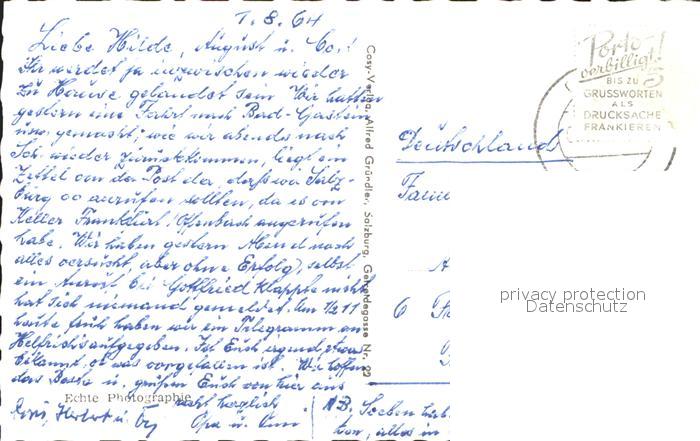 1.8.64
Liebe Hilde, August u. Co.!
Ihr werdet ja inzwischen wieder
zu Hause gelandet sein. Wir hatten
gestern eine Fahrt nach Bad-Gastein
usw. gemacht, wie wir abends nach
Sch. wieder zurückkommen, liegt ein
Zettel von der Post da, daß wir Salz-
burg 00 anrufen sollten, da es von
Keller Frankfurt/Offenbach angerufen
habe. Wir haben gestern Abend noch
alles versucht, aber ohne Erfolg, selbst
ein Anruf bei Gottfried klappte nicht
hat sich niemand gemeldet. Um 1/2 11
heute früh haben wir ein Telegramm an
Helfrichs aufgegeben. Ist Euch irgend etwas
bekannt, ob was vorgefallen ist. Wir hoffen
das Beste u. grüßen Euch von hier aus
recht herzlich
Herbert u.
Opa u. Omi
Echte Photographie
Cosy-Verlag Alfred Gründler, Salzburg, Getreidegasse Nr. 22
Porto
verbilligt!
BIS ZU
GRUSSWORTEN
ALS
DRUCKSACHE
FRANKIEREN
Deutschland
Famil
6
privacy protection
Datenschutz
NB, Soeben
ton, alles in